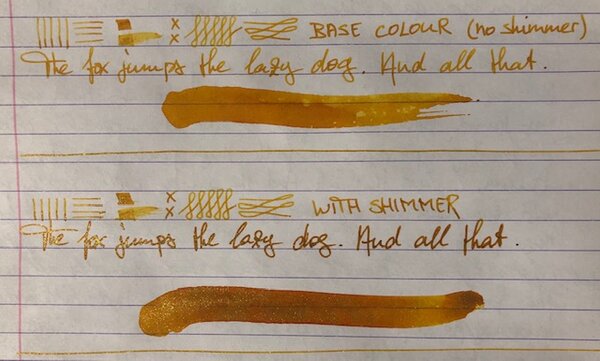 BASE COLOUR (no shimmer)
The fox jumps the lazy dog. And all that.
WITH SHIMMER
The fox jumps the lazy dog. And all that.